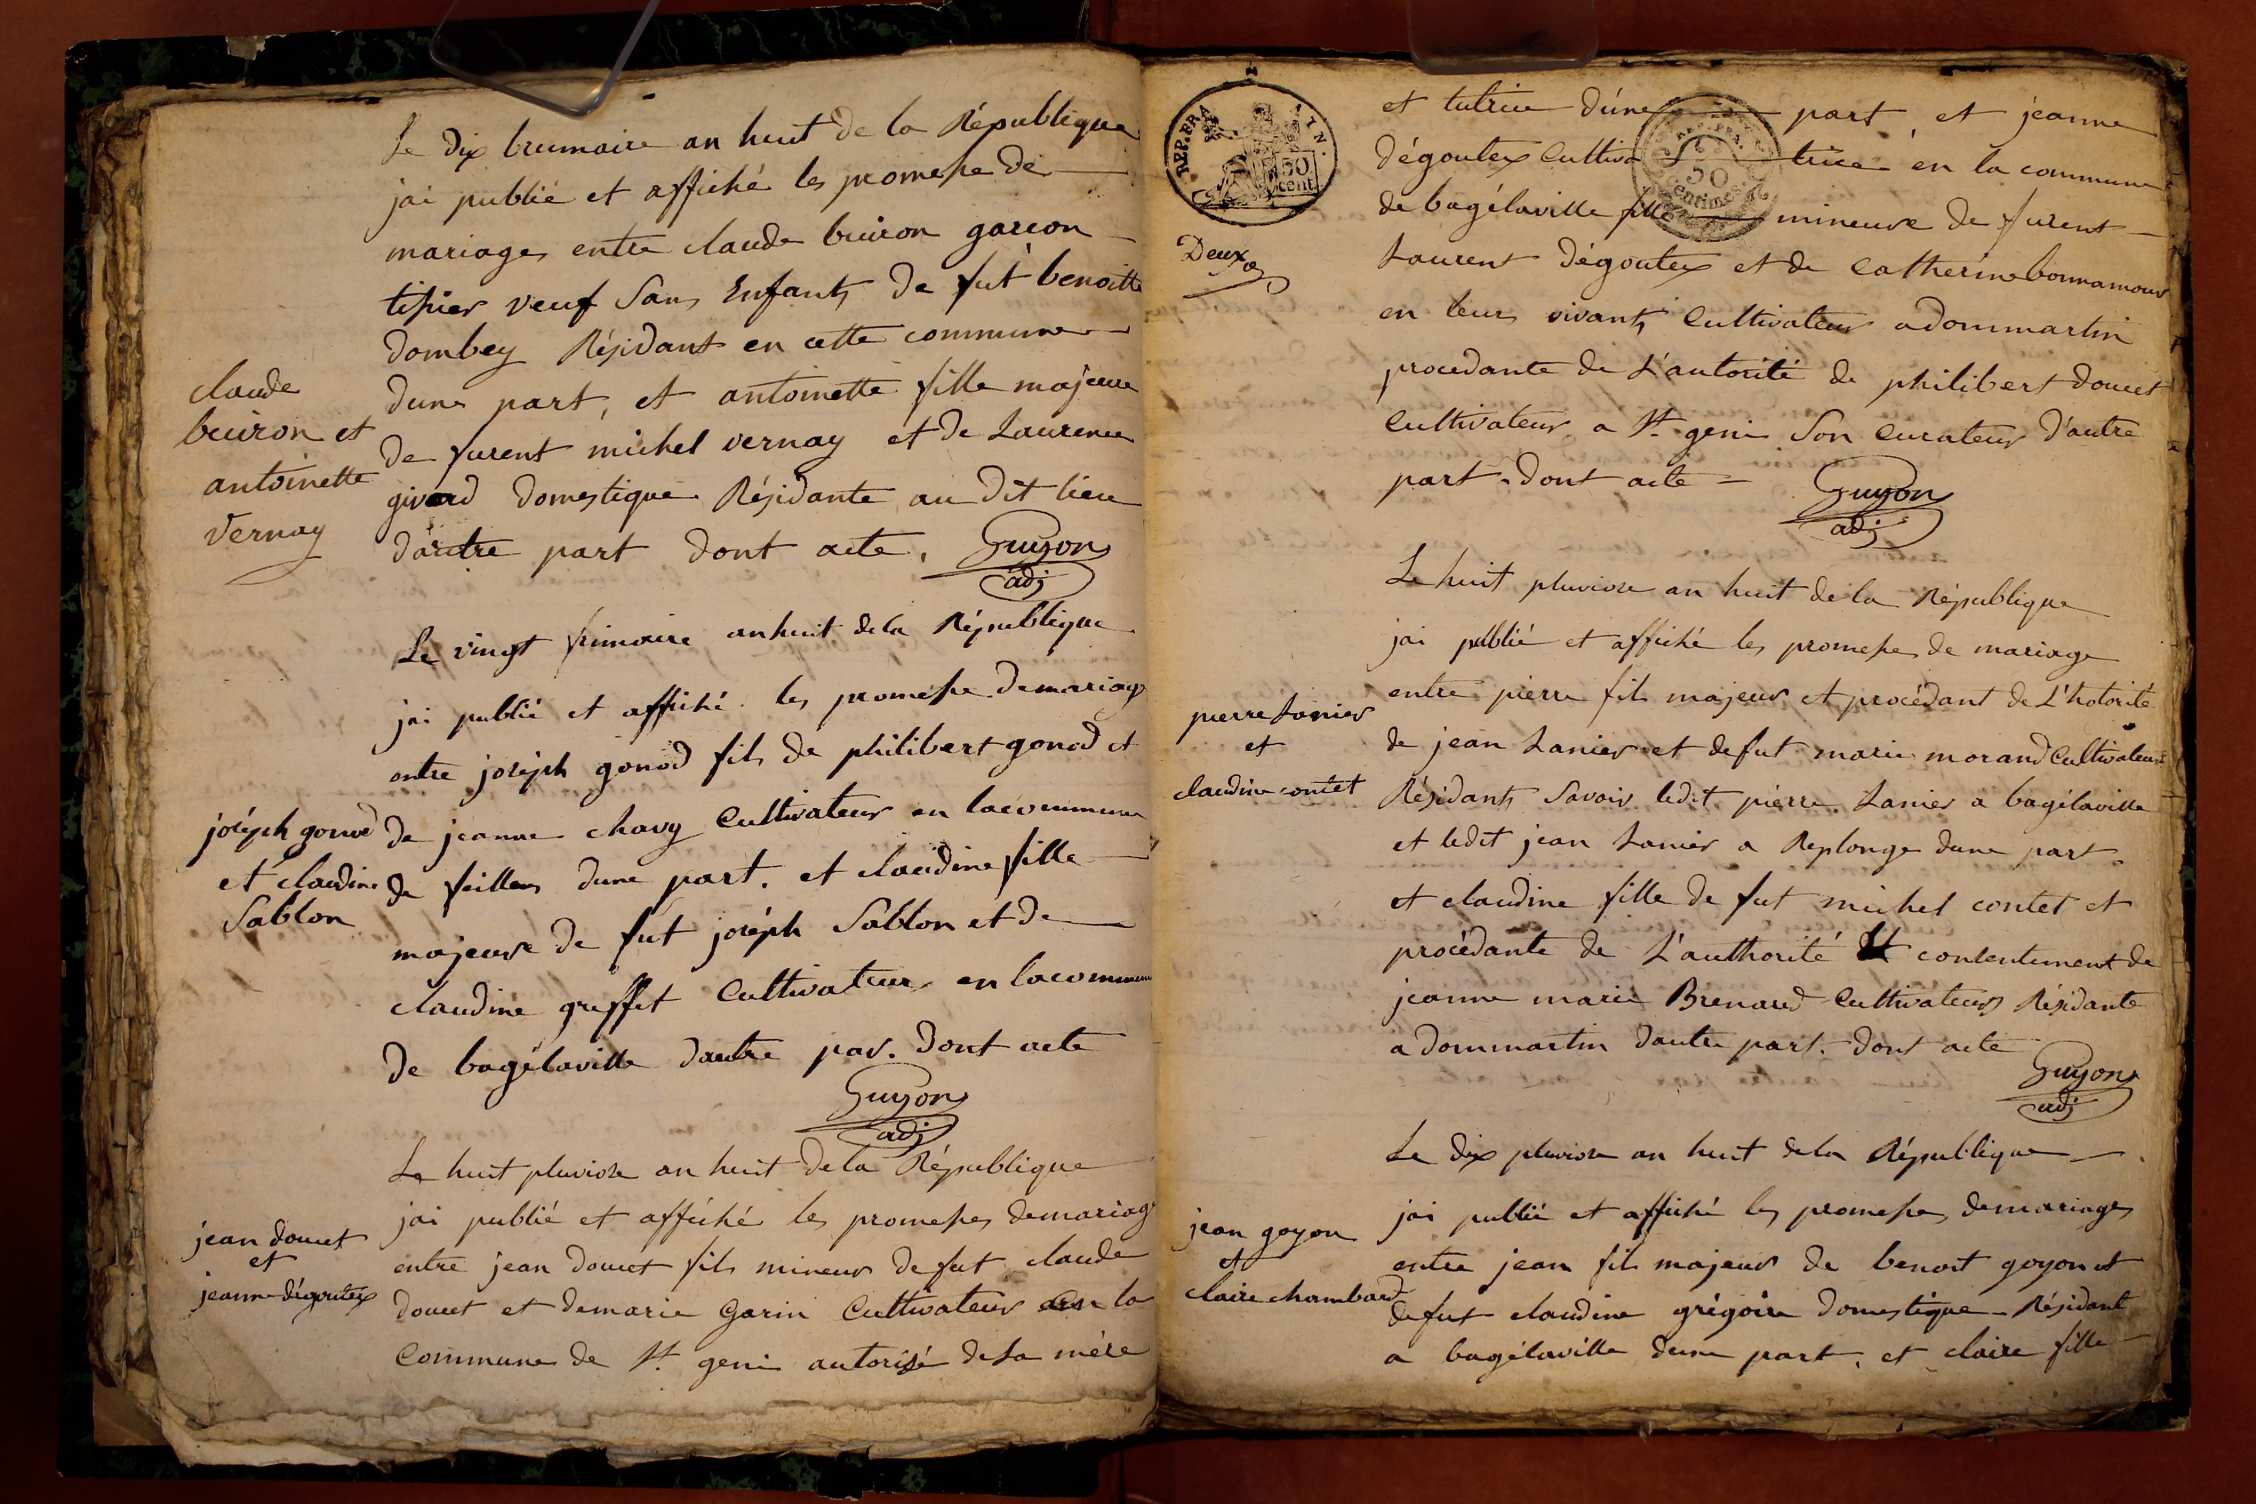 Le dix brumaire an huit de la République
jai publié et affiché les promesse de
mariages entre claude buiron garcon
tissier veuf Sans Enfants de fut benoitte
dombey Résidant en cette commune
claude
buiron et
antoinette
vernay
dune part, et antoinette fille majeure
de furent michel vernay et de Laurence
givord domestique Résidante au dit lieu
dautre part dont acte.
Guyon
adj
Le vingt frimaire an huit de la République
jai publié et affiché les promesse de mariage
entre joséph gonod fils de philibert gonod et
joséph gonod
et claudine
Sablon
de jeanne chavy Cultivateur en la commune
de feillens dune part. et claudine fille
majeure de fut joséph Sablon et de
claudine greffet Cultivateurs en la commune
de bagélaville dautre par. dont acte
Guyon
adj
Le huit pluviose an huit de la République
jean doucet
et
jeanne dégoutex
jai publié et affiché les promesses de mariage
entre jean doucet fils mineur de fut claude
doucet et de marie Garin Cultivateur en la
Commune de St. geni autorisé de sa mére
REP. FRA
50
cent
Deux
et tutrice d'une part et jeanne
dégoutex Cultiva trice en la commune
50
centimes
de bagélaville fille mineure de furent
Laurent dégoutex et de Catherine bonnamour
en leurs vivants Cultivateur a dommartin
procedante de L'autorité de philibert doucet
Cultivateur a St. geni Son Curateur d'autre
part. dont acte =
Guyon
adj
Le huit pluviose an huit de la République
jai publié et affiché les promesses de mariage
pierre Lanier
et
claudine contet
entre pierre fils majeur et procédant de L'hotorité
de jean Lanier et de fut marie morand Cultivateurs
Résidants Savoir ledit pierre Lanier a bagélaville
et ledit jean Lanier a Replonge dune part.
et claudine fille de fut michel contet et
procédante de L'authorité et consentement de
jeanne marie Brenard Cultivateurs Résidante
a dommartin dautre part. dont acte
Guyon
adj
Le dix pluviose an huit de la République
jean goyon
et
claire chambard
jai publié et affiché les promesses de mariages
entre jean fils majeur de benoit goyon et
de fut claudine grégoire domestique Résidant
a bagélaville dune part. et claire fille